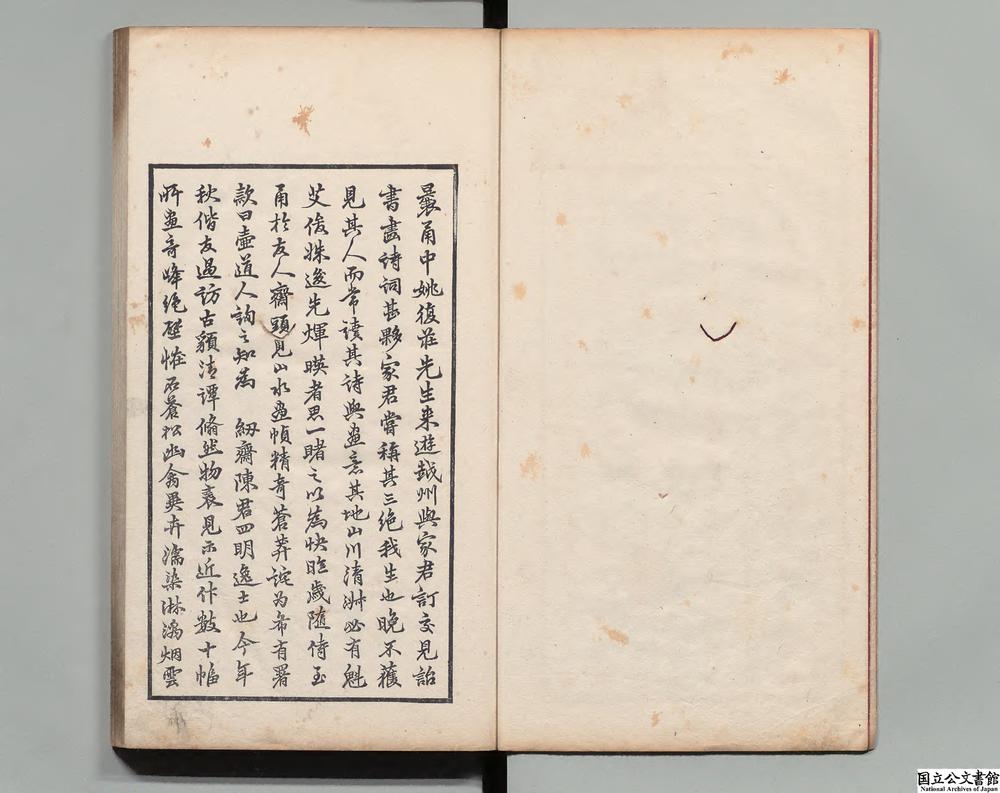 曩甬中姚復莊先生来遊越州與家君訂交見詒
書畫詩詞甚夥家君嘗稱其三絶我生也晚不獲
見其人而常讀其詩與畫意其地山川清淑必有魁
艾俊姝逸先煇暎者思一睹之以為快昨歳随侍至
甬於友人齋頭見山水畫幀精竒蒼莽詫为希有署
款曰壺道人詢之知為 紉齋陳君四明逸士也今年
秋偕友過訪古貌清譚翛然物表見示近作數十幅
所畫竒峰絶壁恠石蒼松幽禽異卉濡染淋漓烟雲
国立公文書館
National Archives of Japan